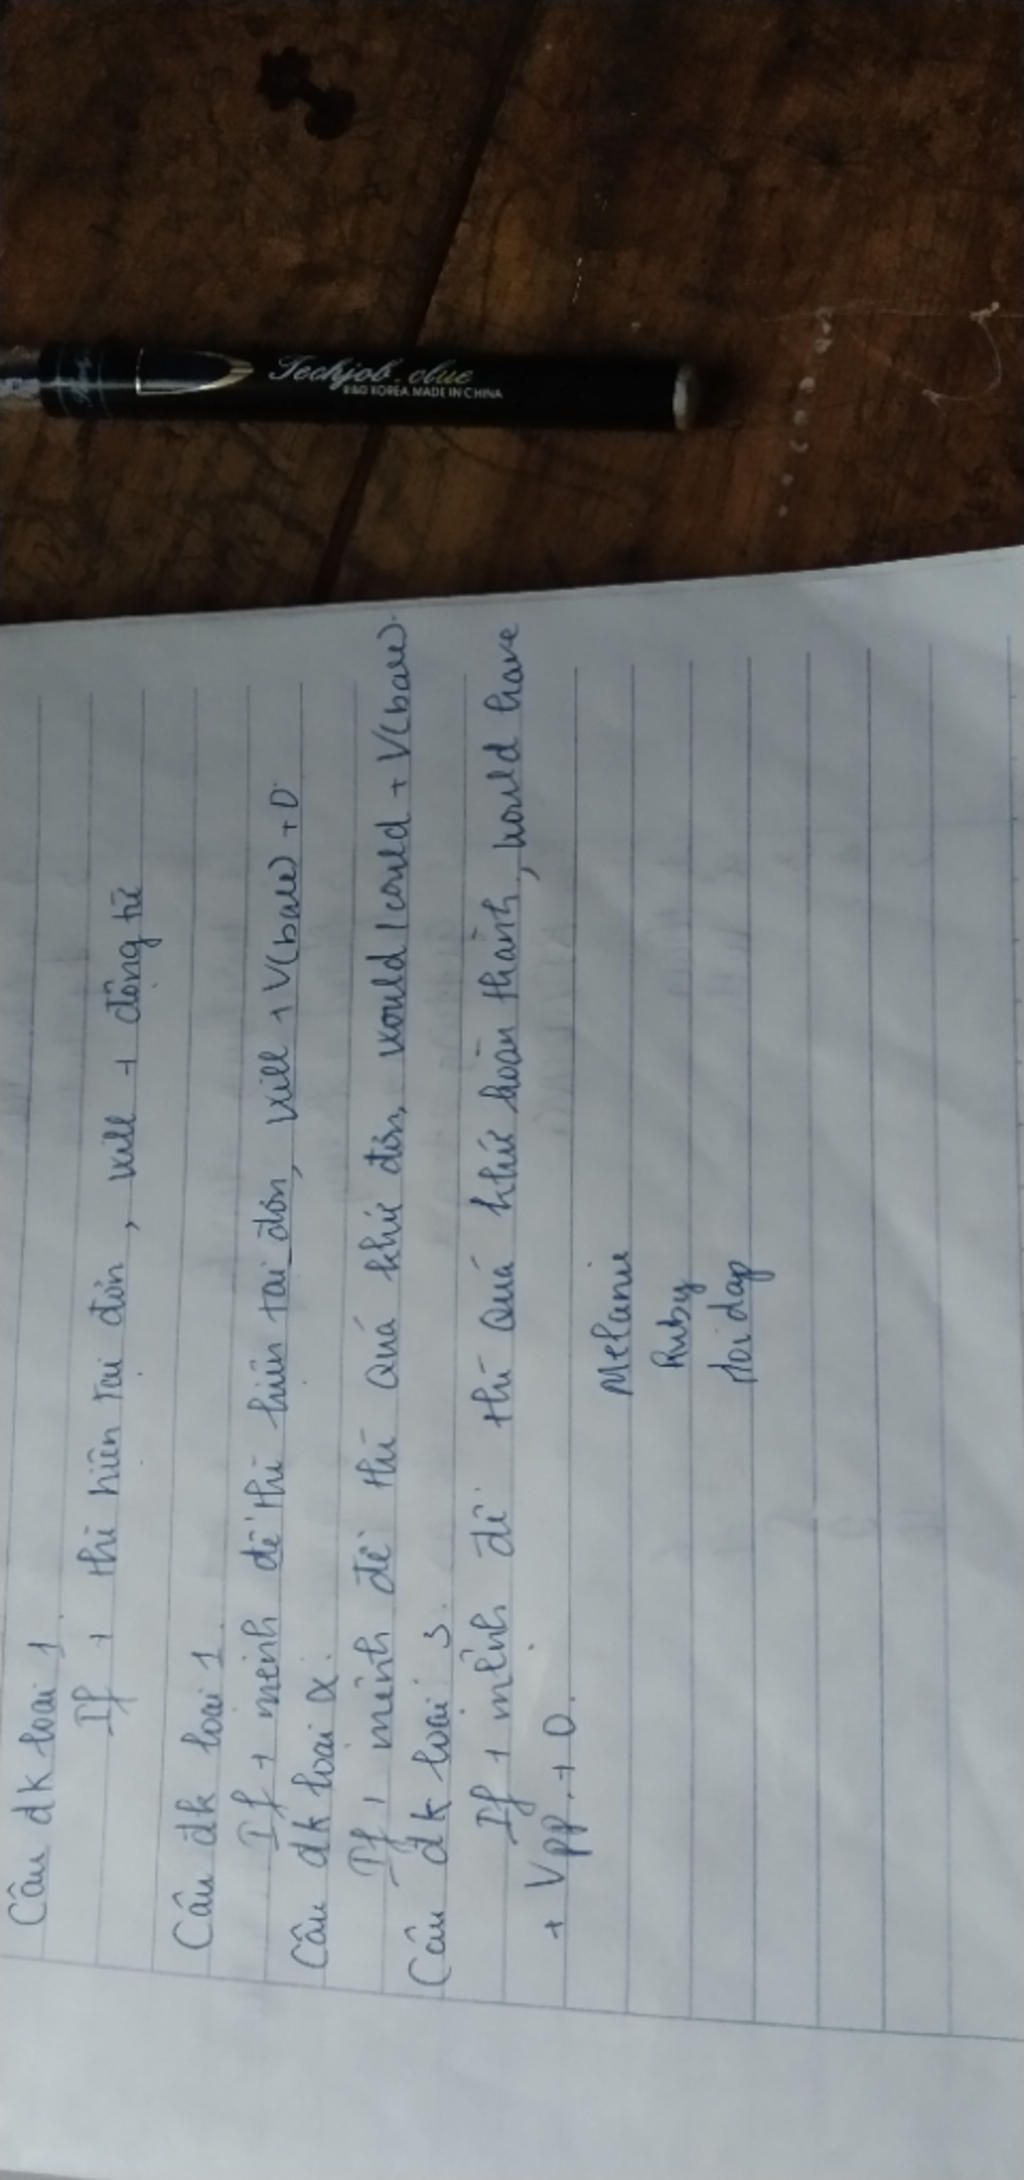 Câu dk loai 1.
If + thì hiên tai đơn, will + động từ
Câu đk loai 1.
If + mệnh đề thì hiên tai đơn, will + V(bare) + O.
Câu đk loai 2.
If + mệnh đề thì quá khứ đơn, would/could + V(bare).
Câu đk loai 3.
If + mệnh đề thì quá khứ hoàn thành, would have
+ Vpp. + O.
Melanie
Ruby
Hoidap
Techjob.clue
R&D KOREA. MADE IN CHINA